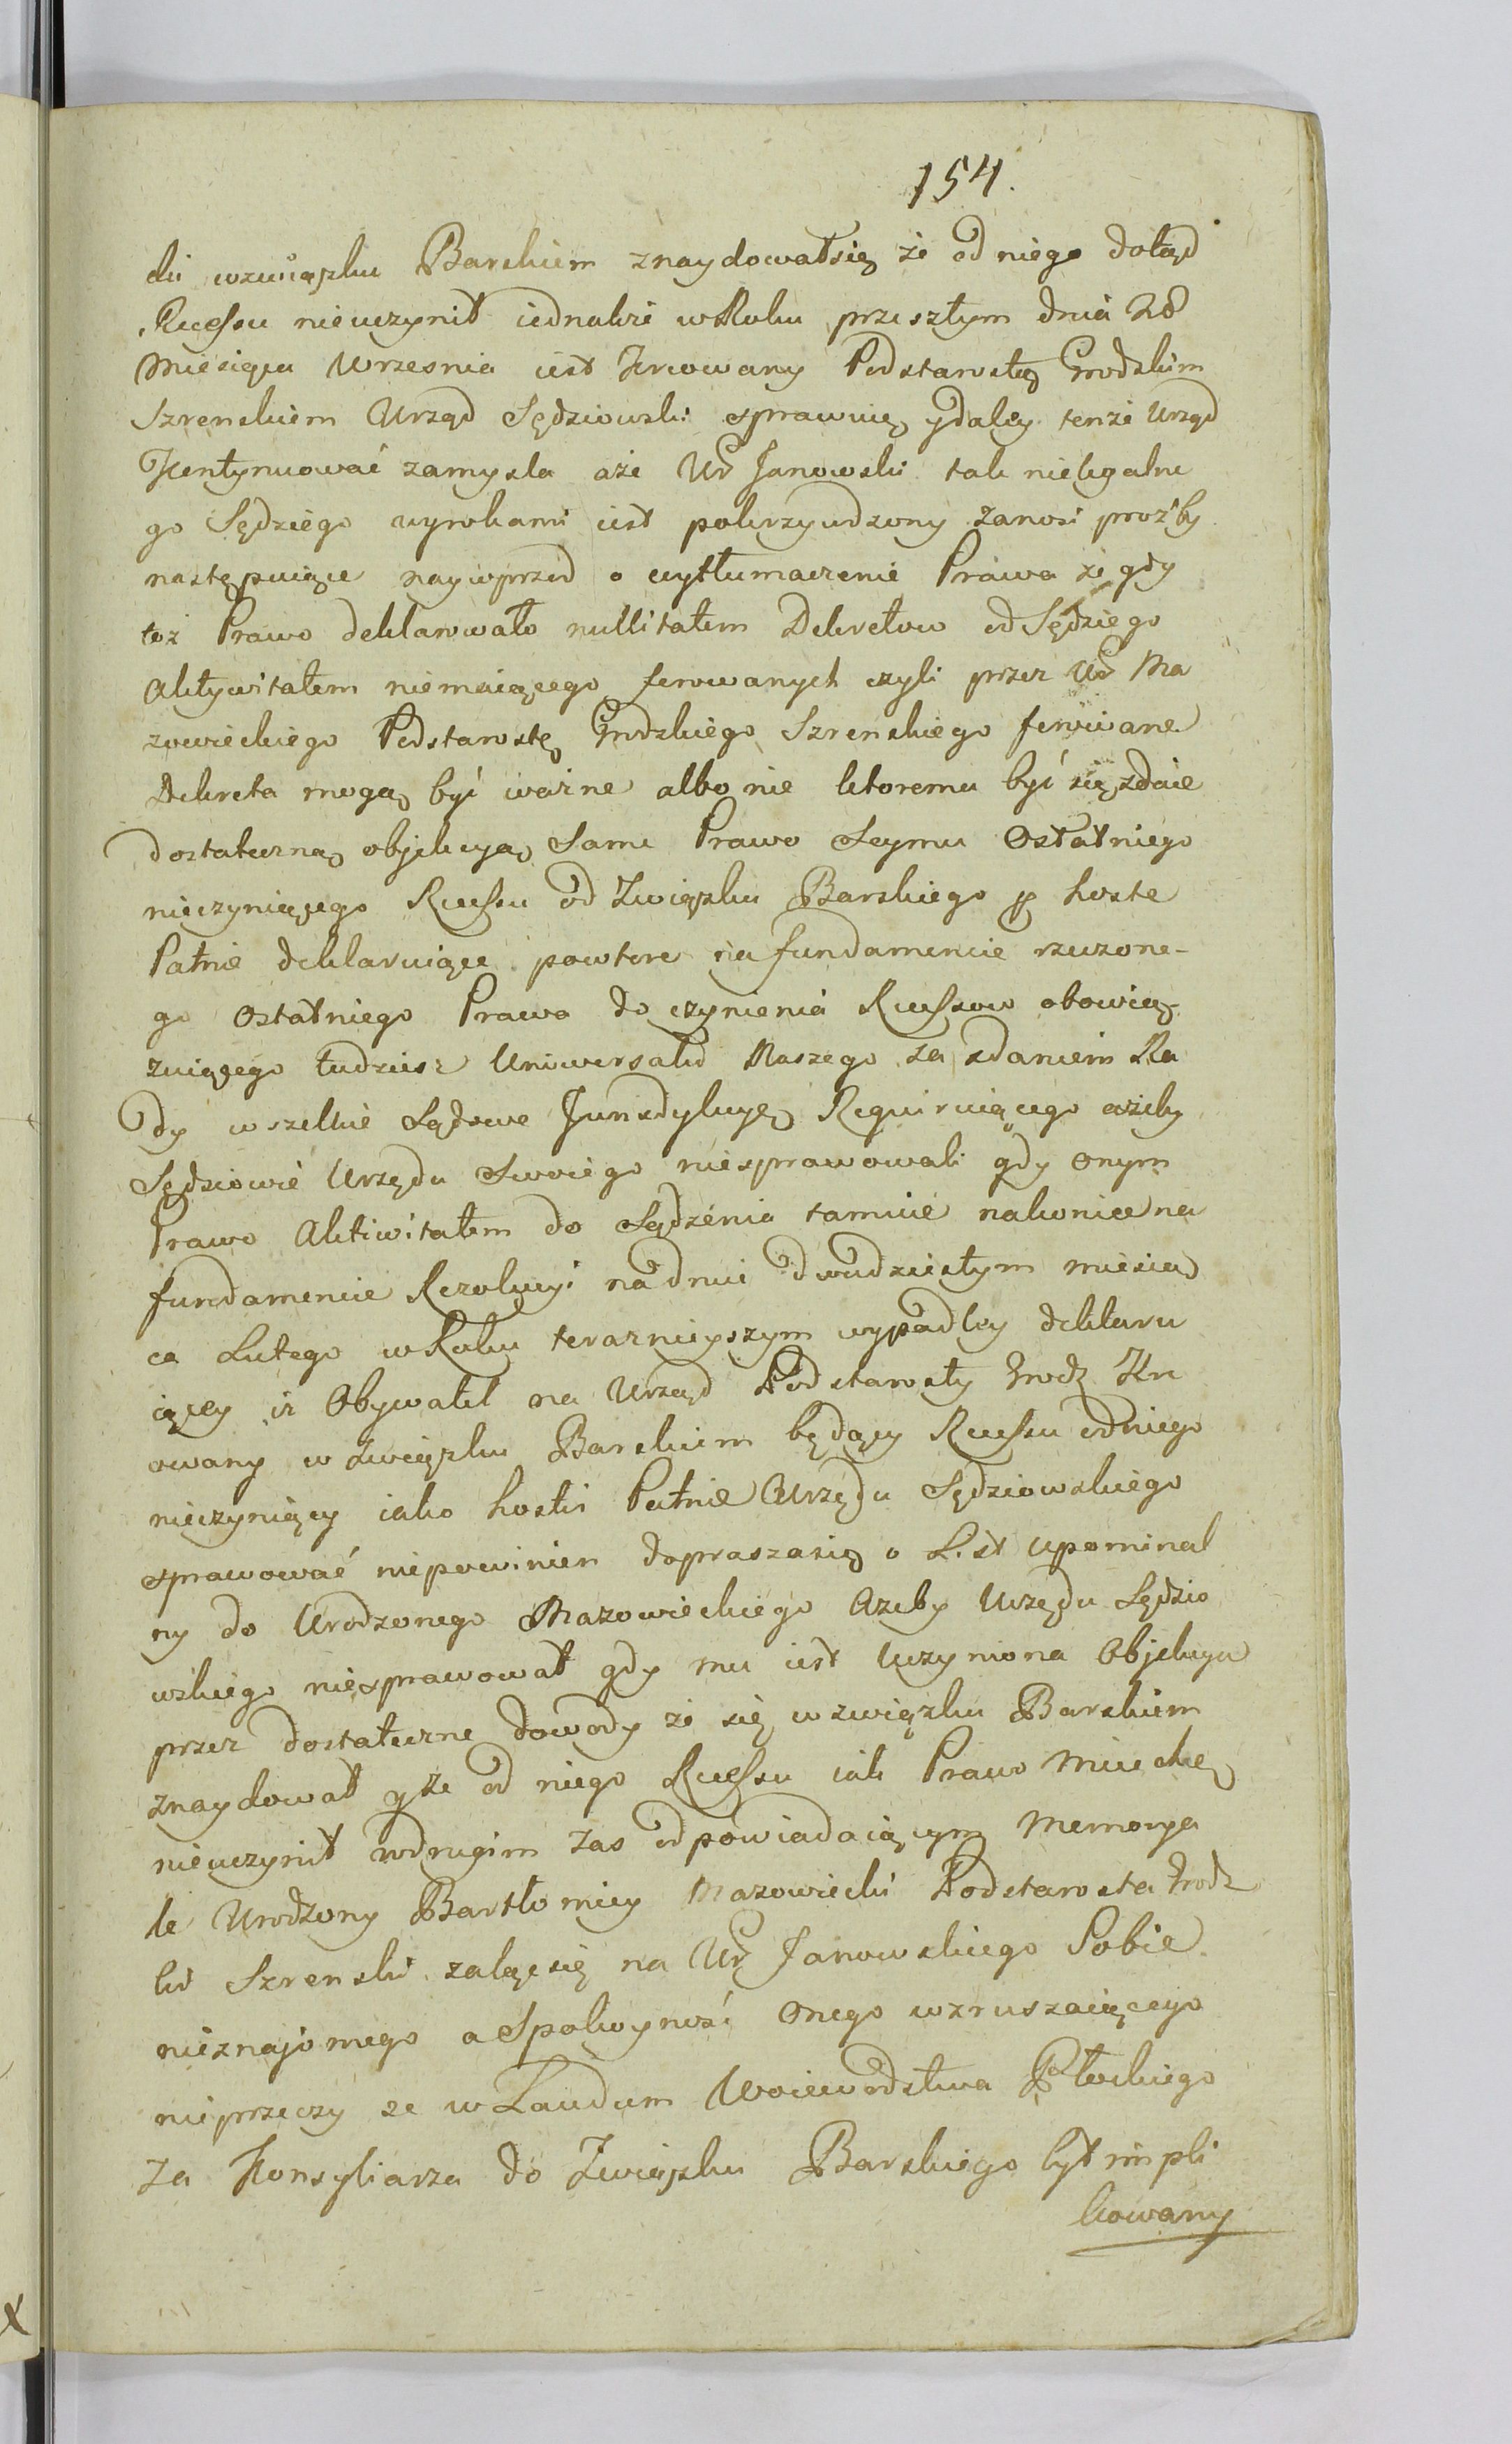 154.
cki wzwiązku Barskiem znaydowałsię że od niego dotąd
Recessu nieuczynił iednakże w Roku przeszłym dnia 28
Miesiąca Wrzesnia iest Kreowany Podstarostą Grodzkim
Szrenskiem Urząd Sędziowski sprawuię ydaley tenże Urząd
Kontynuować zamysla aże Ur Janowski tak nielegalne
go Sędziego wyrokami iest pokrzywdzony zanosi prożby
następuiące naywprzod o wytłumaczenie Prawa że gdy
toż Prawo deklarowało nullitatem Dekretow od Sędziego
Aktywitatem niemaiącego ferowanych czyli przez Ur Ma
zowieckiego Podstarostę Grodzkiego Szrenskiego ferowane
Dekreta mogą być ważne albo nie ktoremu być się zdaie
dostateczną objekcyą Same Prawo Seymu Ostatniego
nieczyniącego Recessu od Związku Barskiego p hoste
Patrie deklaruiące powtore na fundamencie rzeczone-
go Ostatniego Prawa do czynienia Recessow obowią
zuiącego tudziesz Uniwersału Naszego za zdaniem Ra
dy wszelkie Sądowe Jurisdykcyę Requiruiącego ażeby
Sędziowie Urzędu Swoiego niesprawowali gdy onym
Prawo Aktiwitatem do Sądzenia tamuie nakoniec na
fundamencie Rezolucyi na dniu dwudziestym miesią
ca Lutego w Roku terazniyszym wypadłey deklaru
iącey iż Obywatel na Urząd Podstarosty Grodz Kre
owany w Związku Barskiem będący Recessu odniego
nieczyniący iako hostis Patrie Urzędu Sędziowskiego
sprawować niepowinien dopraszasię o List upominal
ny do Urodzonego Mazowieckiego Azeby Urzędu Sędzio
wskiego niesprawował gdy mu iest Uczyniona Objekcya
przez dostateczne dowody że się w związku Barskiem
znaydował y że od niego Recessu iak Prawo Miecchce
nieuczynił wdrugim zas odpowiadaiącym Memorya
le Urodzony Bartłomiey Mazowiecki Podstarosta Grodz
ki Szrenski żaląc się na Ur Janowskiego Sobie
nieznajomego a Spokoyność Onego wzruszaiącego
nieprzeczy że w Laudum Woiewodstwa Płockiego
za Konsyliarza do Związku Barskiego był impli
kowany